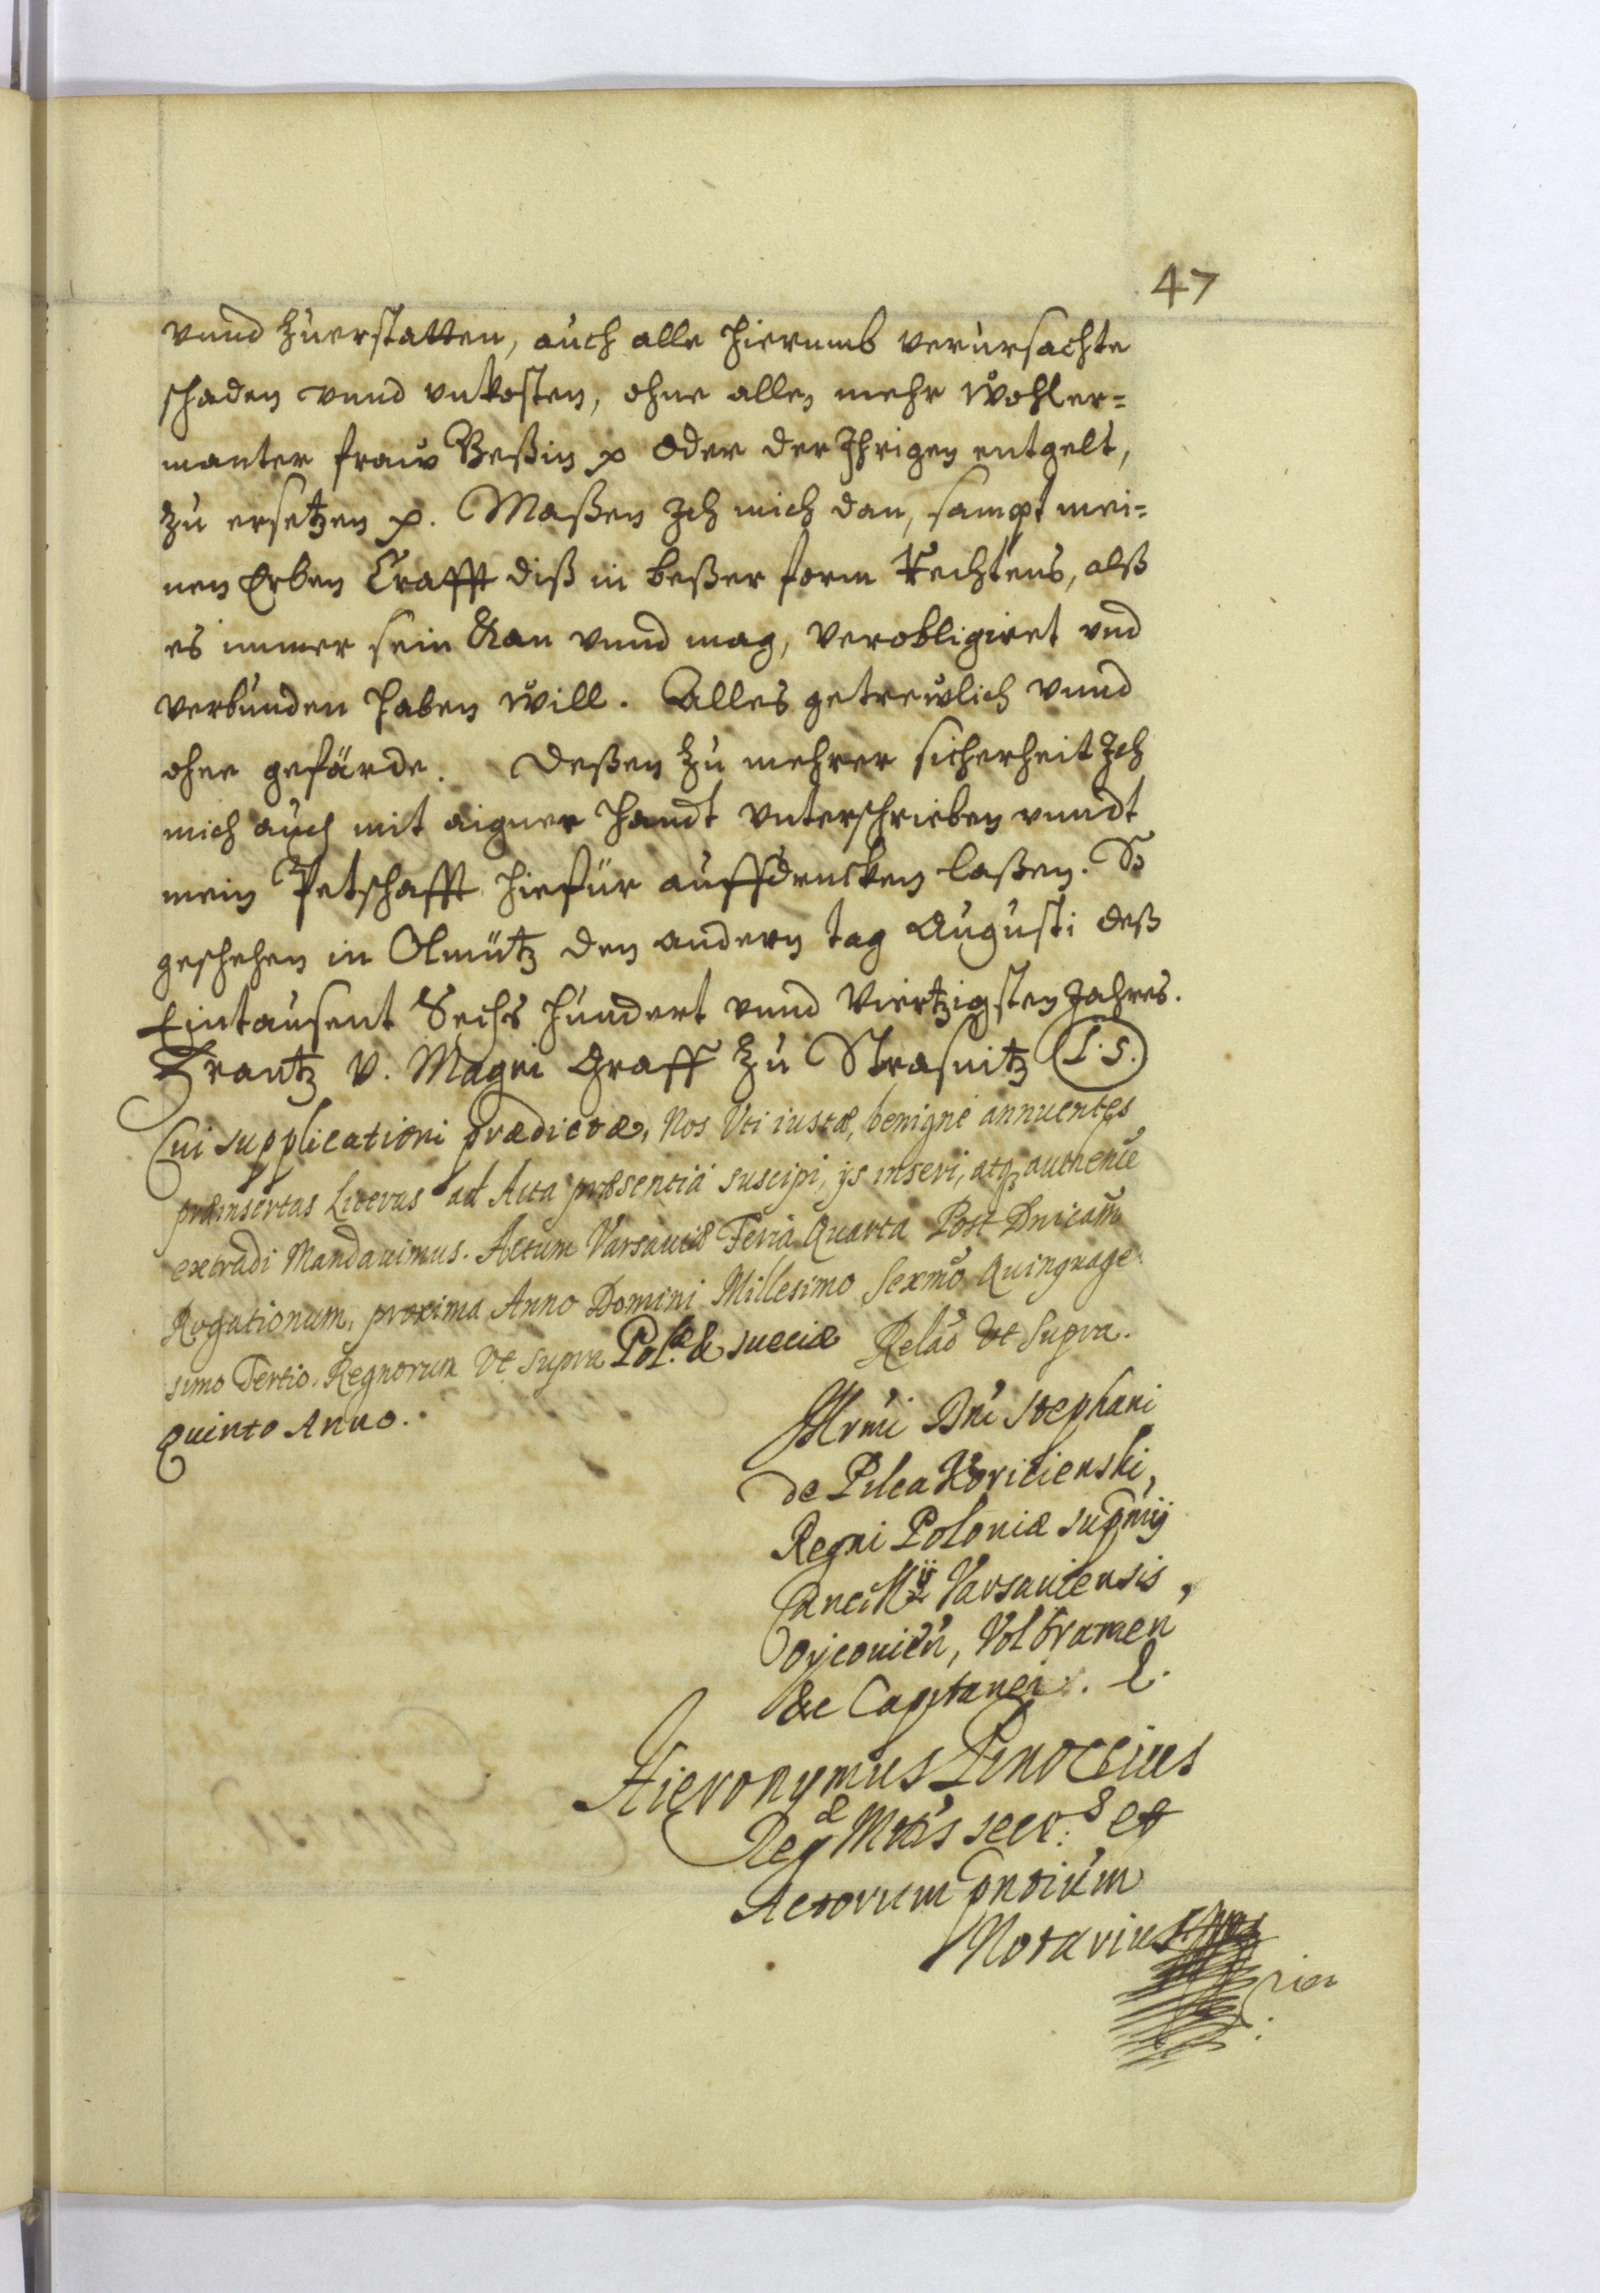 47
vnnd zuerstatten, auch alle hierumb verursachte
schaden vnnd vnkosten, ohne allen mehr wohler=
manter fraw Beßin oder der Ihrigen entgelt,
zu ersetzen. Maßen Ich mich dan, sampt mei=
nen Erben Crafft diß in beßer form Rechtens, alß
es immer sein kan vnnd mag, verobligiret vnd
verbunden haben will. Alles getrewlich vnnd
ohne gefärde. Deßen zu mehrer sicherheit Ich
mich auch mit aigner handt vnterschrieben vnndt
mein Petschafft hiefür auffdrucken laßen. So
geschehen in Olmütz den andern tag Augusti deß
Eintausent Sechs hundert vnnd Viertzigsten Jahres.
Frantz v. Magni Graff zu Strasnitz L.S.
Cui supplicationi prædictæ, Nos Vti iustæ, benigne annuentes
præinsertas Literas ad Acta præsentia suscipi, ijs inseri, atq authence
extradi Mandauimus. Actum Varsauiæ Feria Quarta Post Dnicam
Rogationum, proxima Anno Domini Millesimo Sexmo Quinquage
simo Tertio. Regnorum Vt supra Pol.æ & sueciæ Relao Vt Supra.
Quinto Anno.
Illrmi Dni Stephani
de Pilca Koricienski,
Regni Poloniæ supmij
Cancellij Varsauiensis,
Oycouien, Volbramen
&c Capitanei.
Hieronymus Pinoccius
Regæ Mttis secr:s et
Actorum pntium
Notarius